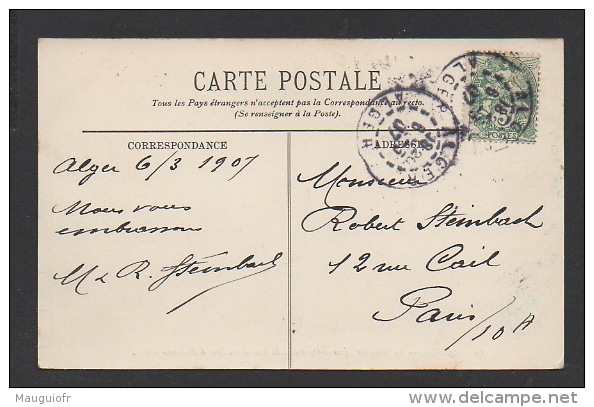 CARTE POSTALE
Tous les Pays étrangers n'acceptent pas la Correspondance au recto.
(Se renseigner à la Poste).
CORRESPONDANCE
ADRESSE
Alger 6/3 1907
Nous vous
embrassons
M & R. Steinbach
Monsieur
Robert Steinbach
12 rue Cail
Paris
/10 A
ALGER
ALGER
07
POSTES
Mauguiofr
delcampe.net